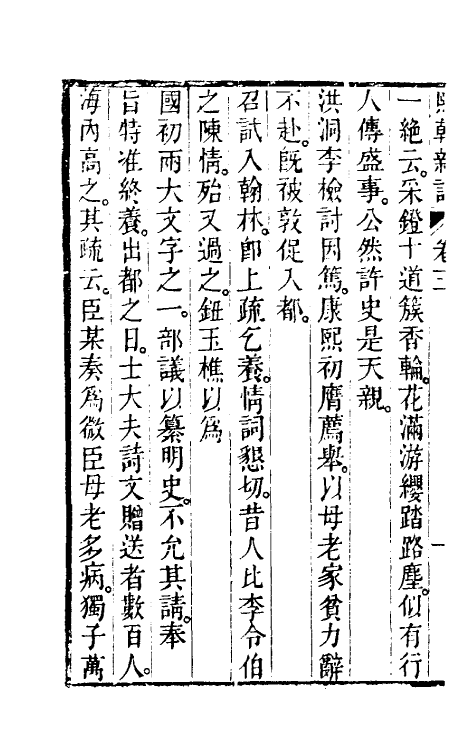 熙朝新語 卷三 一
一絶云。采鐙十道簇香輪。花滿游纓踏路塵。似有行
人傳盛事。公然許史是天親。
洪洞李檢討因篤。康熙初膺薦舉。以母老家貧力辭
不赴。旣被敦促入都。
召試入翰林。卽上疏乞養。情詞懇切。昔人比李令伯
之陳情。殆又過之。鈕玉樵以爲
國初兩大文字之一。部議以纂明史。不允其請。奉
旨特准終養。出都之日。士大夫詩文贈送者數百人。
海內高之。其疏云。臣某奏爲微臣母老多病。獨子萬